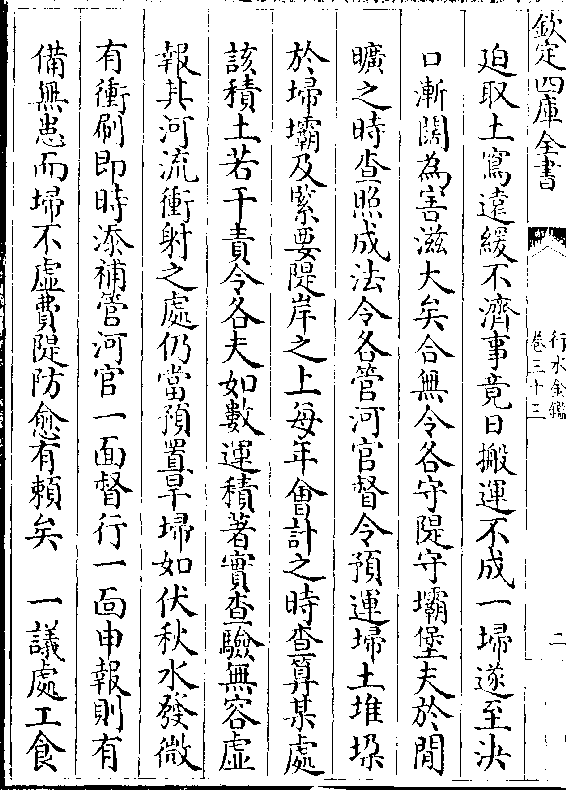 欽定四庫全書
行水金鑑
卷三十三
二
迫取土寫遠緩不濟事竟日搬運不成一埽遂至決
口漸闊為害滋大矣合無令各守隄守壩堡夫於閒
曠之時查照成法令各管河官督令預運埽土堆垜
於埽壩及緊要隄岸之上每年會計之時查算某處
該積土若干責令各夫如數運積著實查驗無容虛
報其河流衝射之處仍當預置旱埽如伏秋水發微
有衝刷即時添補管河官一面督行一面申報則有
備無患而埽不虛費隄防愈有賴矣　一議處工食